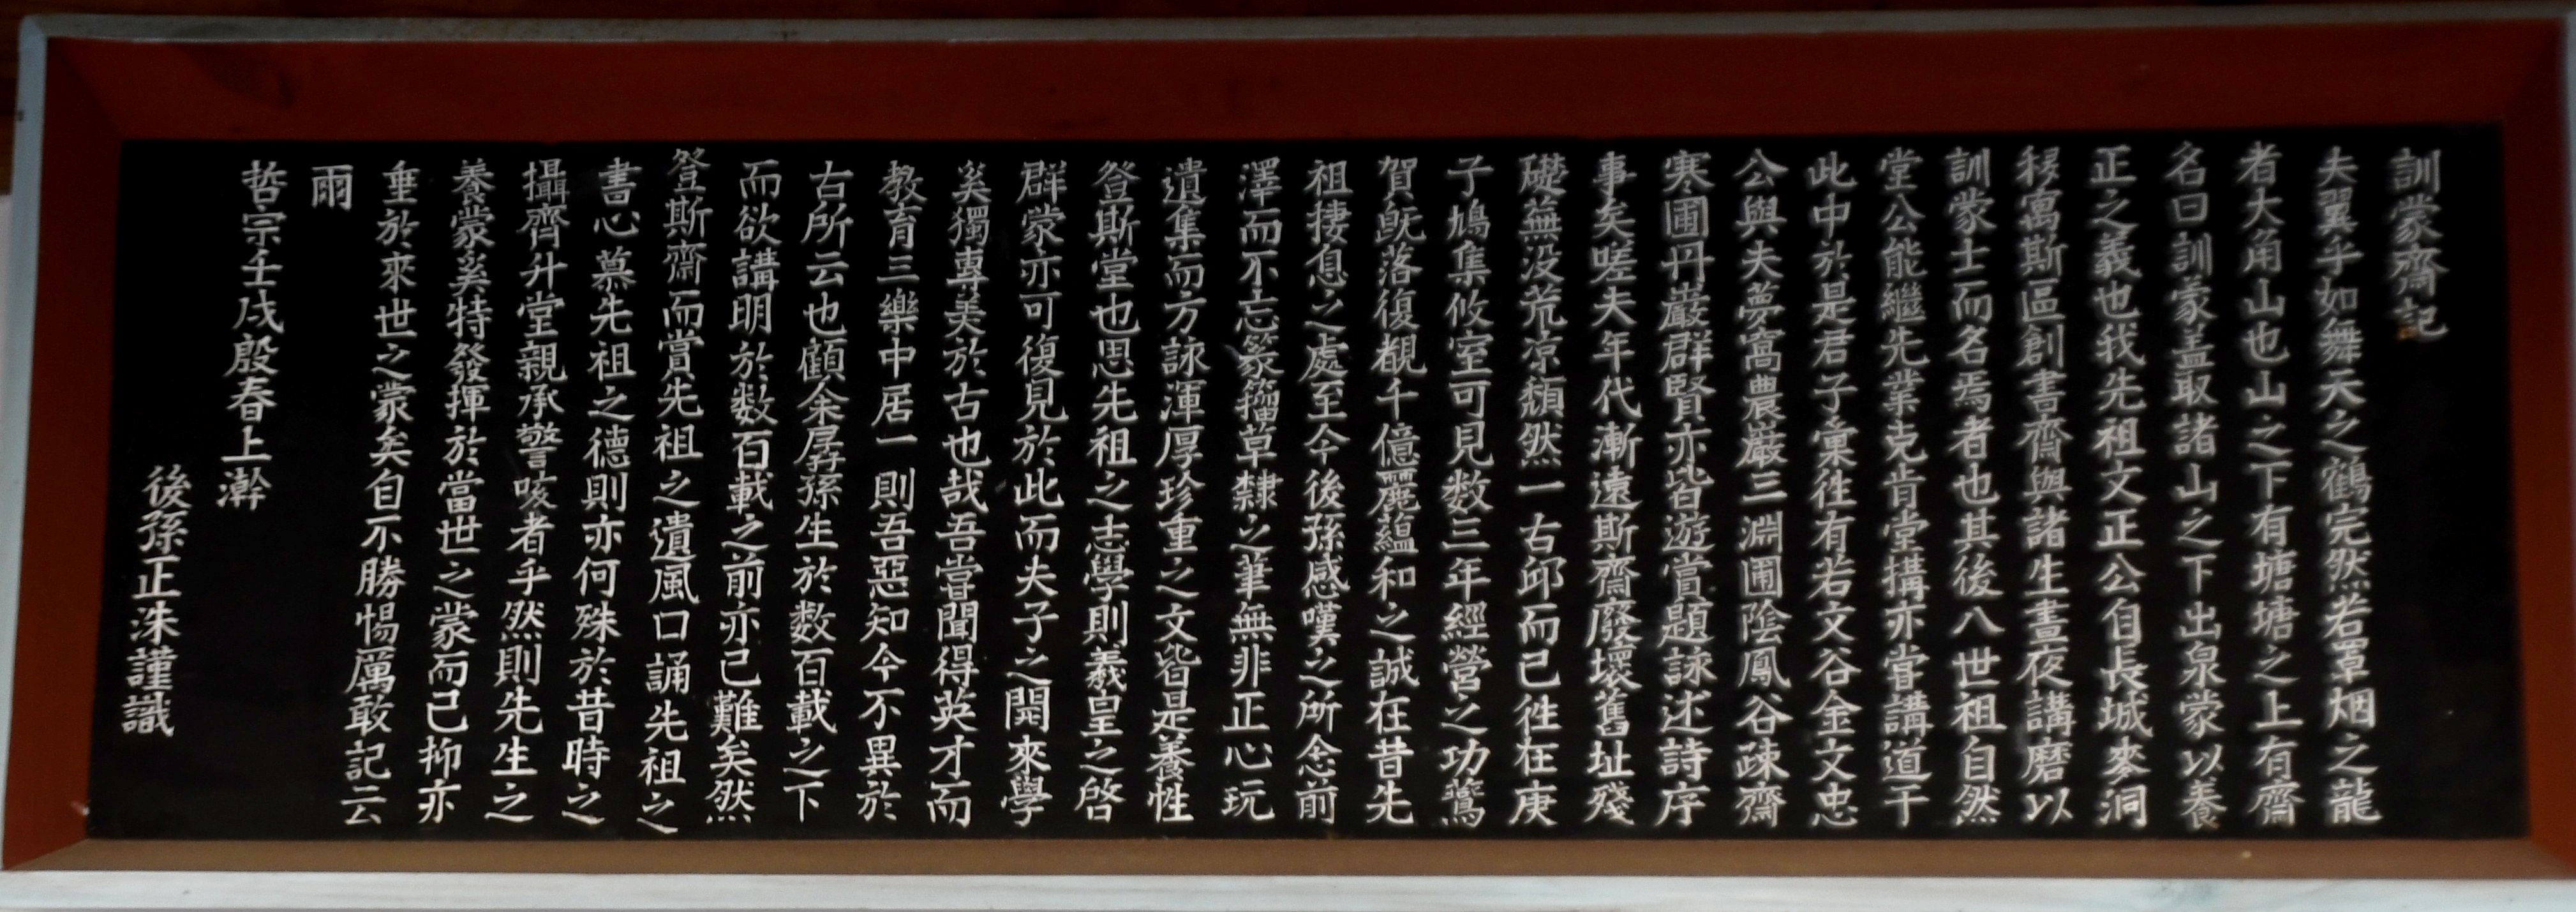 訓蒙齋記
夫翼乎如舞天之鶴完然若罩烟之龍
者大角山也山之下有塘塘之上有齋
名曰訓蒙盖取諸山之下出泉蒙以養
正之義也我先祖文正公自長城麥洞
移寓斯區創書齋與諸生晝夜講磨以
訓蒙士而名焉者也其後八世祖自然
堂公能繼先業克肯堂搆亦嘗講道于
此中於是君子彙徃有若文谷金文忠
公與夫夢窩農巖三淵圃陰鳳谷疎齋
寒圃丹巖群賢亦皆遊賞題詠述詩序
事矣嗟夫年代漸遠斯齋廢壞舊址殘
礎蕪没荒凉頹然一古邱而已徃在庚
子鳩集攸室可見数三年經營之功鷰
賀旣落復覩千億麗蘊和之誠在昔先
祖捿息之處至今後孫感嘆之所念前
澤而不忘篆籒草隸之筆無非正心玩
遺集而方詠渾厚珍重之文皆是養性
登斯堂也思先祖之志學則羲皇之啓
群蒙亦可復見於此而夫子之開來學
奚獨專美於古也哉吾嘗聞得英才而
教育三樂中居一則吾惡知今不異於
古所云也顧余孱孫生於数百載之下
而欲講明於数百載之前亦已難矣然
登斯齋而賞先祖之遺風口誦先祖之
書心慕先祖之德則亦何殊於昔時之
攝齊升堂親承警咳者乎然則先生之
養蒙奚特發揮於當世之蒙而已抑亦
垂於來世之蒙矣自不勝惕厲敢記云
爾
哲宗壬戌殷春上澣
後孫正洙謹識